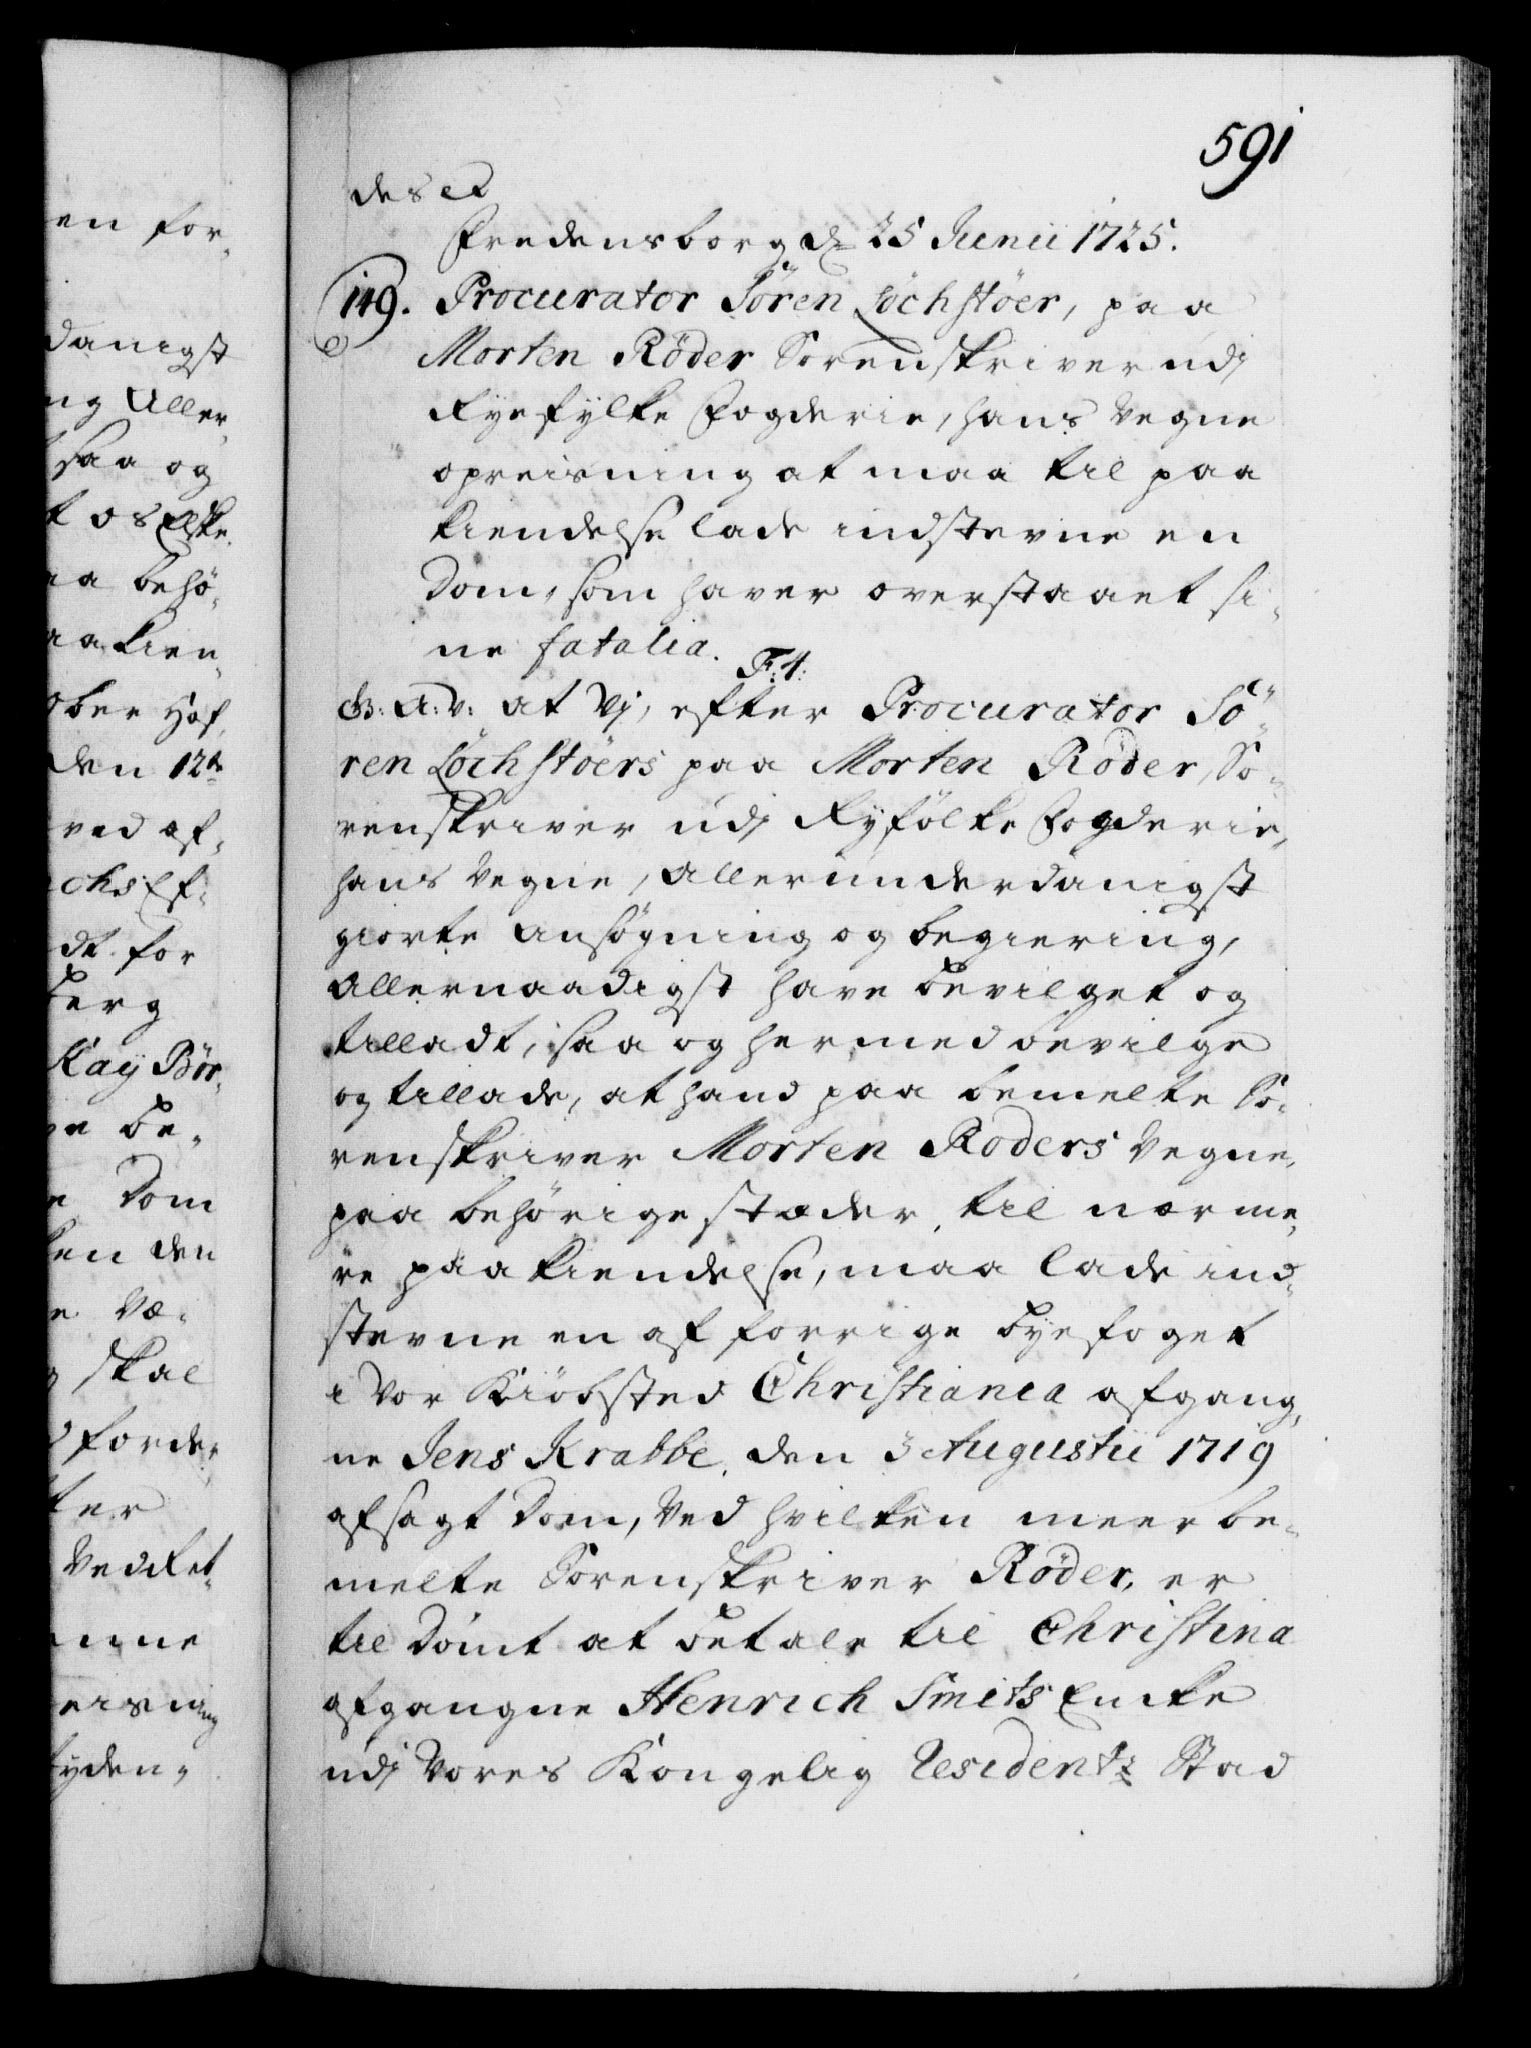 591
des et
Fredensborg d. 25 Junii 1725.
149. Procurator Sören Löchstöer, paa
Morten Röder Sorenskriver udj
Ryefylke Fogderie, hans Vegne
opreisning at maa til paa
kiendelse lade indstevne en
Dom, som haver overstaaet si-
ne fatalia.
F: 4:
G: A: V: at Vj, efter Procurator Sö-
ren Löchstöers paa Morten Röder, So-
renskriver udj Ryfölke Fogderie,
hans Vegne, allerunderdanigst
giorte Ansögning og begiering,
Allernaadigst have bevilget og
tilladt, saa og hermed bevilge
og tillade, at hand paa bemelte So-
renskriver Morten Roders Vegne,
paa behörige stæder, til nærme-
re paakiendelse, maa lade ind-
stevne en af forrige byefoget
i Vor Kiöbsted Christiania afgang-
ne Jens Krabbe, den 3 Augustii 1719
afsagt Dom, Ved hvilken meerbe-
melte Sorenskriver Röder, er
til Dömt at betale til Christina
afgangne Henrich Smits Encke
udj Vores Kongelig Residentz Stad
en for-
danigst
ng Aller-
saa og
t os Elske.
aa behö-
aakien-
ober Hof-
den 12te
ved af-
chs Ef-
dt for
berg
Kay Bör-
ge be-
e Dom
ken den
e Væ-
g skal
d forde-
ter
Vedket-
nne
eisning
tyden-